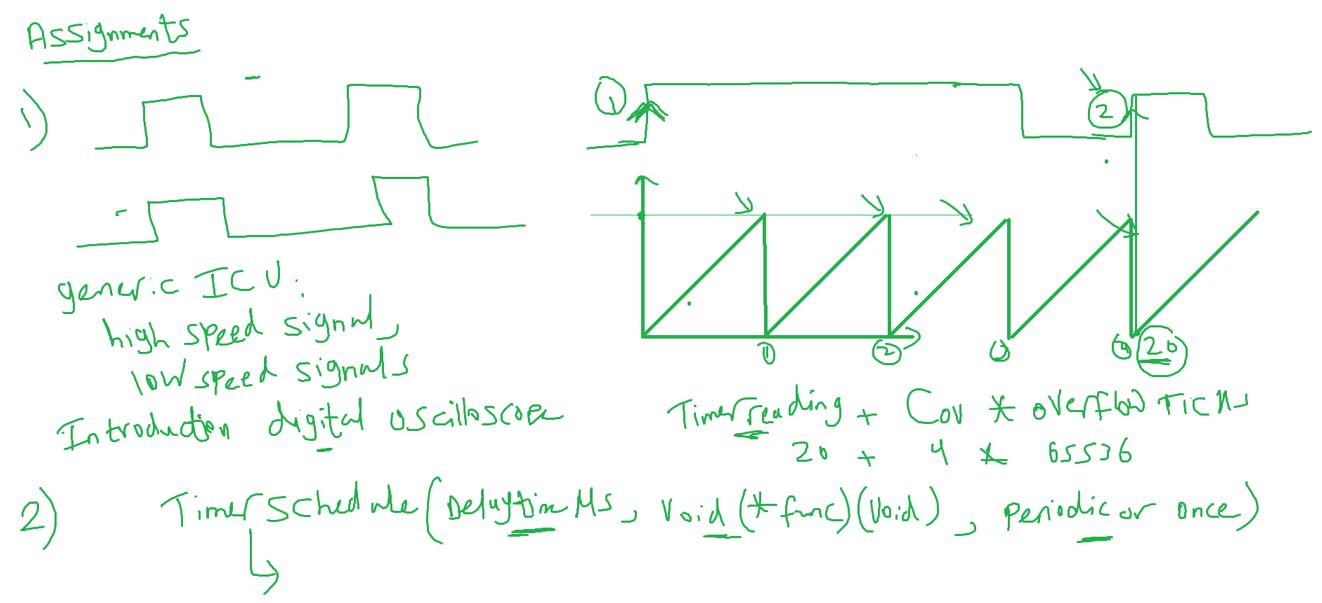 Assignments
1)
①
2
generic ICU:
high speed signal,
low speed signals
Introduction digital oscilloscope
① ② ③ ④ 20
Timer reading + Cov * overflow Ticks
20 + 4 * 65536
2) Timer Schedule (Delaytime Ms, Void (*func)(Void), periodic or once)